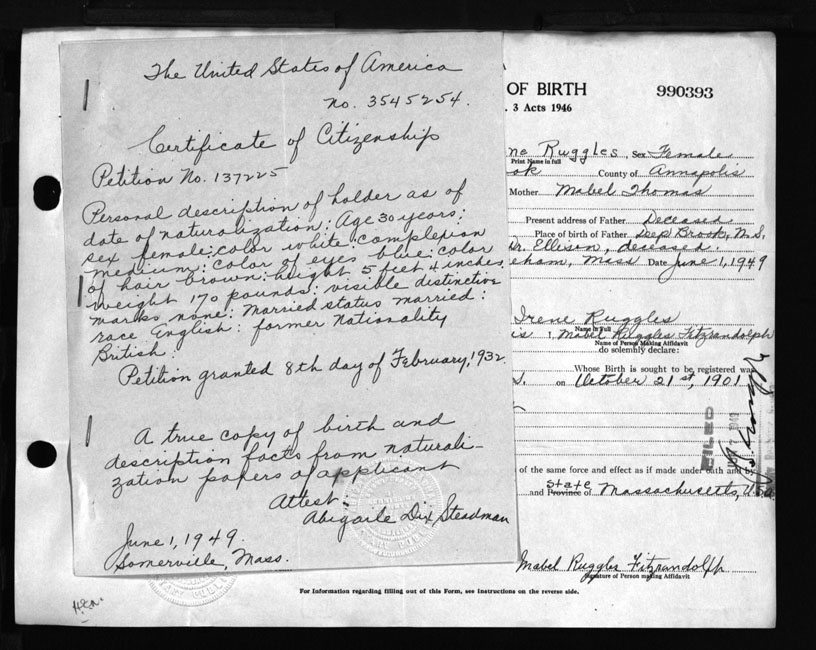 The United States of America
No. 3545254.
Certificate of Citizenship
Petition No. 137225
Personal description of holder as of
date of naturalization: Age 30 years:
sex female: color white: complexion
medium: color of eyes blue: color
of hair brown: height 5 feet 4 inches
weight 170 pounds: visible distinctive
marks none: Married status married:
race English: former Nationality
British.
Petition granted 8th day of February, 1932
A true copy of birth and
description facts from naturali-
zation papers of applicant
Attest.
Abigaile Dix Steadman
June 1, 1949.
Somerville, Mass.
OF BIRTH 990393
. 3 Acts 1946
ne Ruggles, Sex Female
Print Name in full
ok County of Annapolis
Mother Mabel Thomas
Present address of Father Deceased
Place of birth of Father Deep Brook, N.S.
Dr. Ellison, deceased.
eham, Mass Date June 1, 1949
Irene Ruggles
Name in Full
is I, Mabel Ruggles Fitzrandolph
Name of Person Making Affidavit
do solemnly declare:
Whose Birth is sought to be registered was
S. on October 21st, 1901
FILED
of the same force and effect as if made under oath and by
and Province of State Massachusetts, U.S.A.
Mabel Ruggles Fitzrandolph
Signature of Person making Affidavit
For Information regarding filling out of this Form, see Instructions on the reverse side.